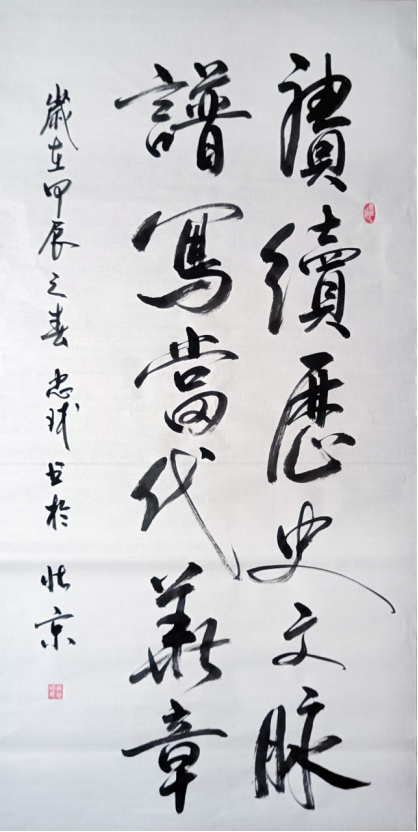 賡續歷史文脉
譜寫當代華章
歲在甲辰之春 忠 书於北京